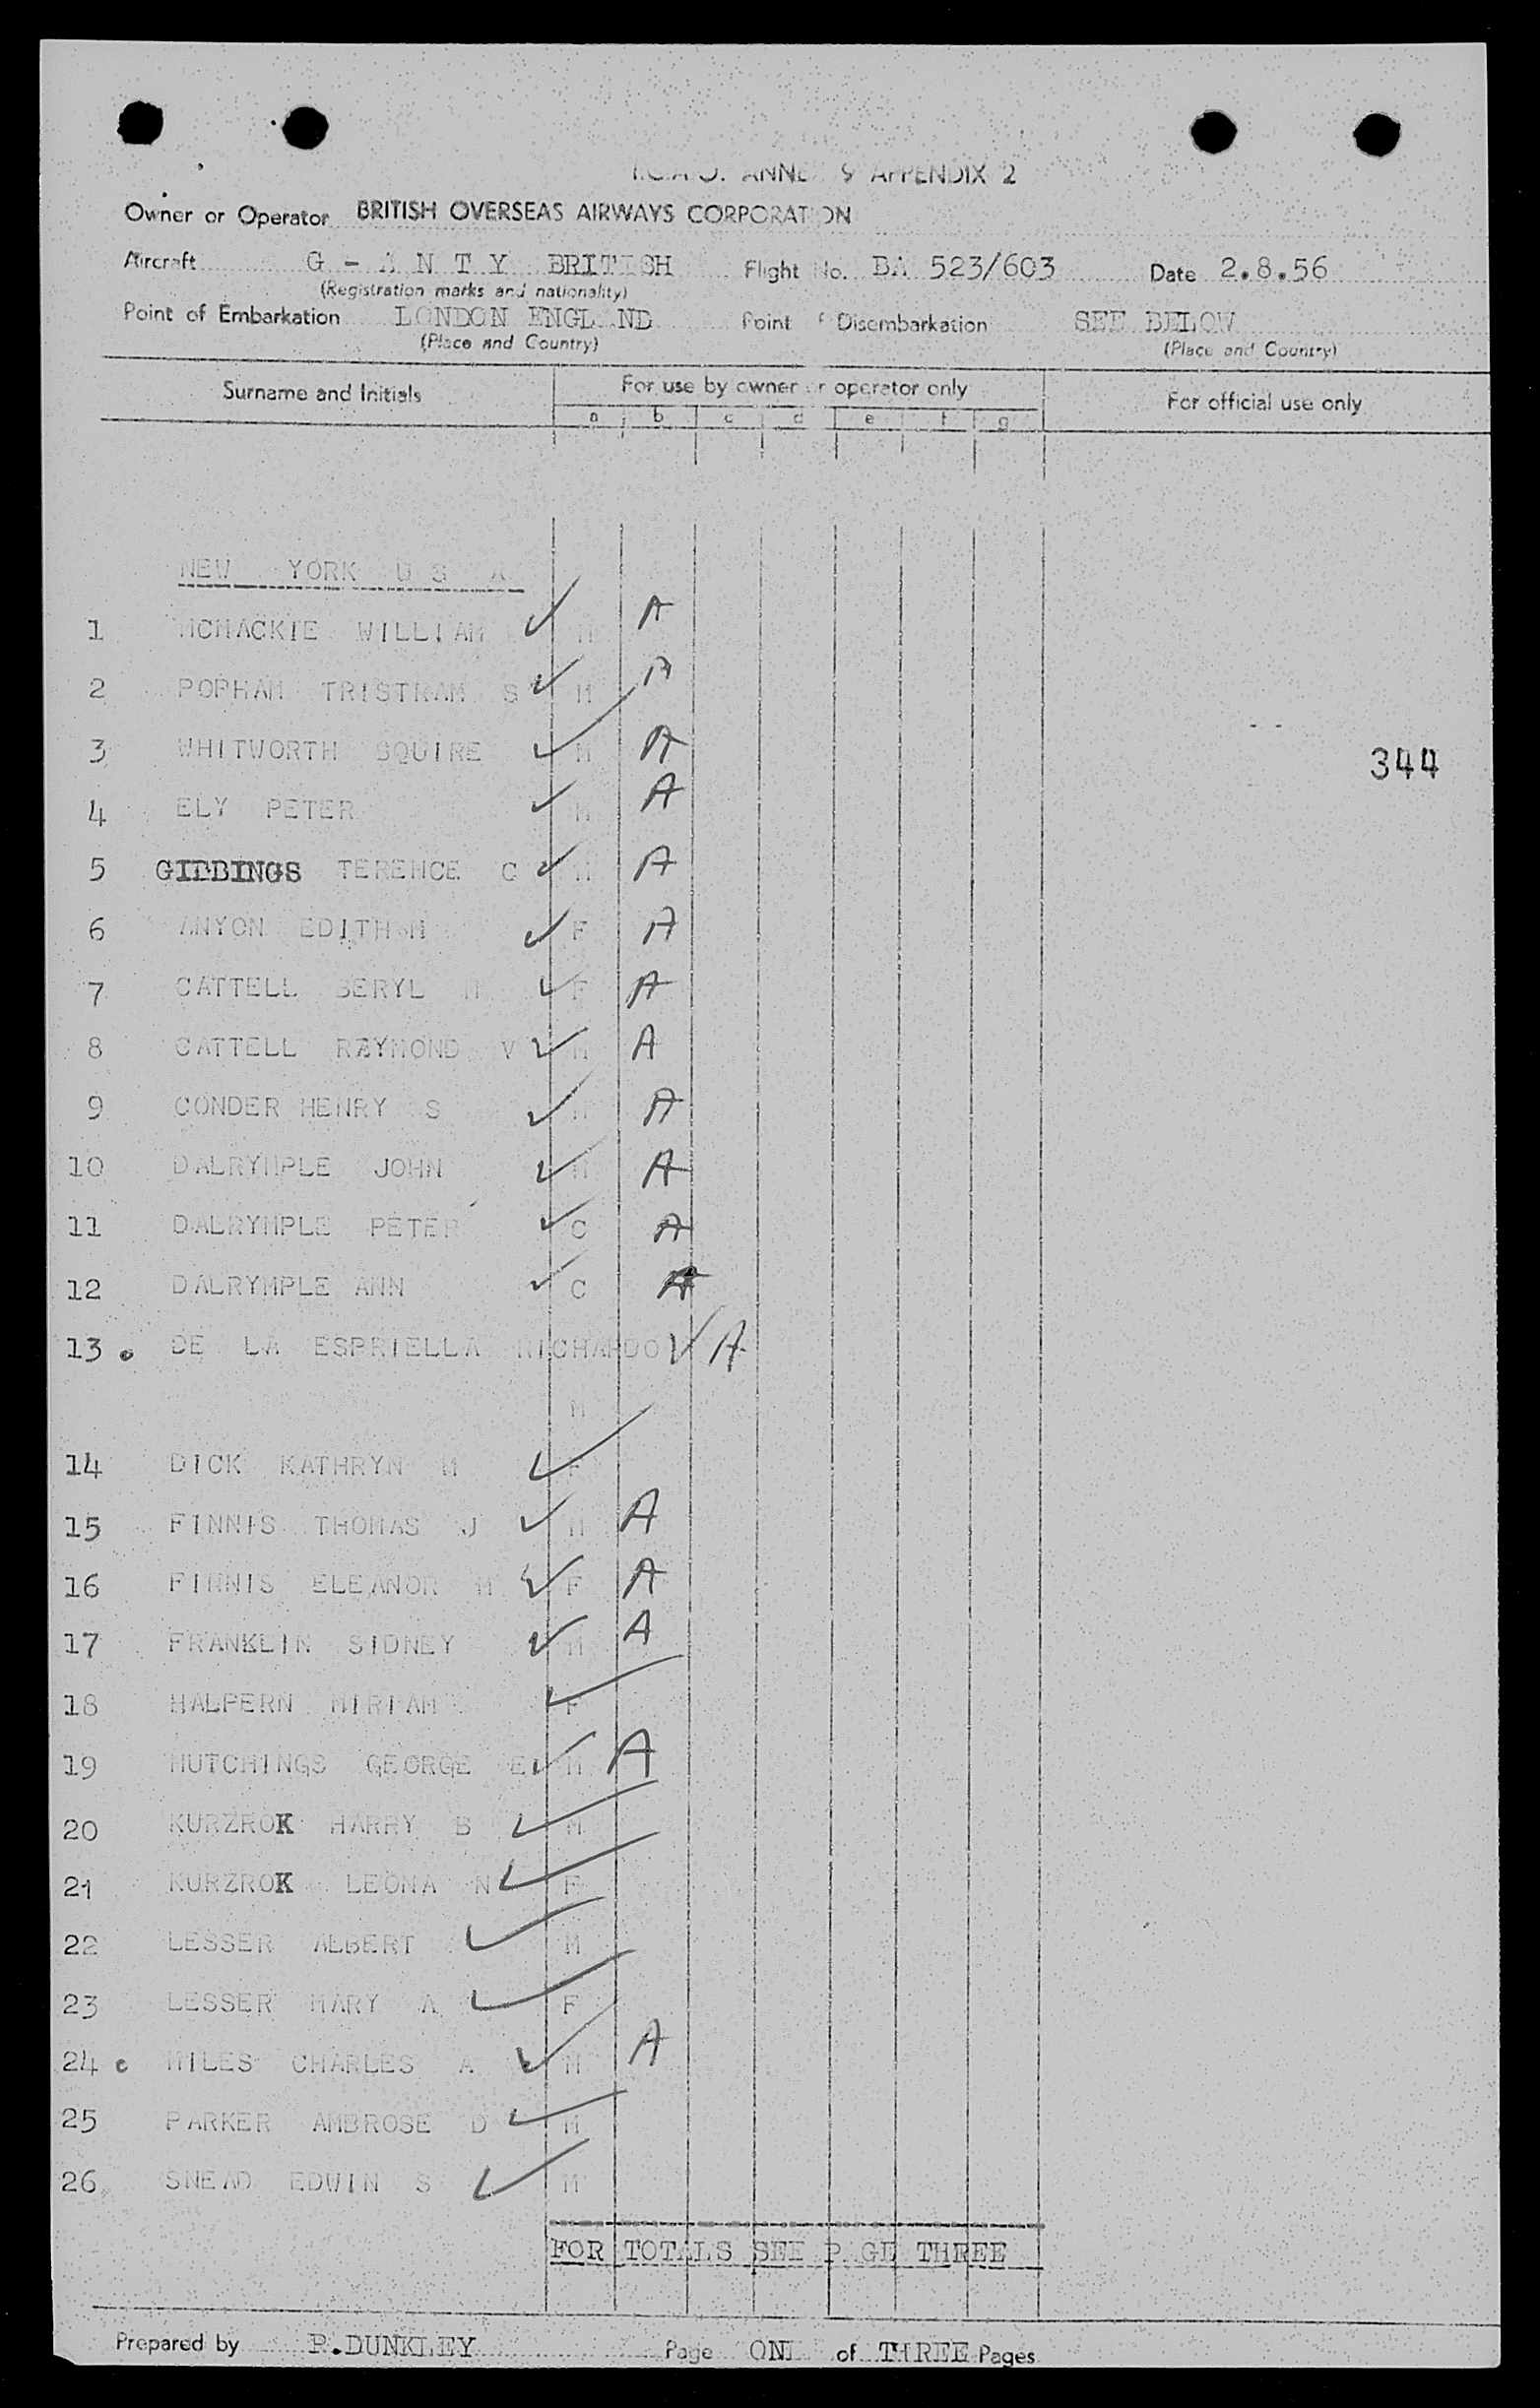 I.C.A.O. ANNEX 9 APPENDIX 2
Owner or Operator BRITISH OVERSEAS AIRWAYS CORPORATION
Aircraft G - A N T Y BRITISH Flight No. BA 523/603 Date 2.8.56
(Registration marks and nationality)
Point of Embarkation LONDON ENGLAND Point of Disembarkation SEE BELOW
(Place and Country) (Place and Country)
Surname and Initials For use by owner or operator only For official use only
a b c d e f g
NEW YORK U S A
1 MCMACKIE WILLIAM ✓ M A
2 POPHAM TRISTRAM S ✓ M A
3 WHITWORTH SQUIRE ✓ M A
344
4 ELY PETER ✓ M A
5 GIBBINGS TERENCE C ✓ M A
6 ANYON EDITH M ✓ F A
7 CATTELL BERYL M ✓ F A
8 CATTELL RAYMOND V ✓ M A
9 CONDER HENRY S ✓ M A
10 DALRYMPLE JOHN ✓ M A
11 DALRYMPLE PETER ✓ C A
12 DALRYMPLE ANN ✓ C A
13 DE LA ESPRIELLA RICHARDO ✓ A
M
14 DICK KATHRYN M ✓ F
15 FINNIS THOMAS J ✓ M A
16 FINNIS ELEANOR M ✓ F A
17 FRANKLIN SIDNEY ✓ M A
18 HALPERN MIRIAM ✓ F
19 HUTCHINGS GEORGE E ✓ M A
20 KURZROK HARRY B ✓ M
21 KURZROK LEONA N ✓ F
22 LESSER ALBERT ✓ M
23 LESSER MARY A ✓ F
24 MILES CHARLES A ✓ M A
25 PARKER AMBROSE D ✓ M
26 SNEAD EDWIN S ✓ M
FOR TOTALS SEE PAGE THREE
Prepared by P.DUNKLEY Page ONE of THREE Pages